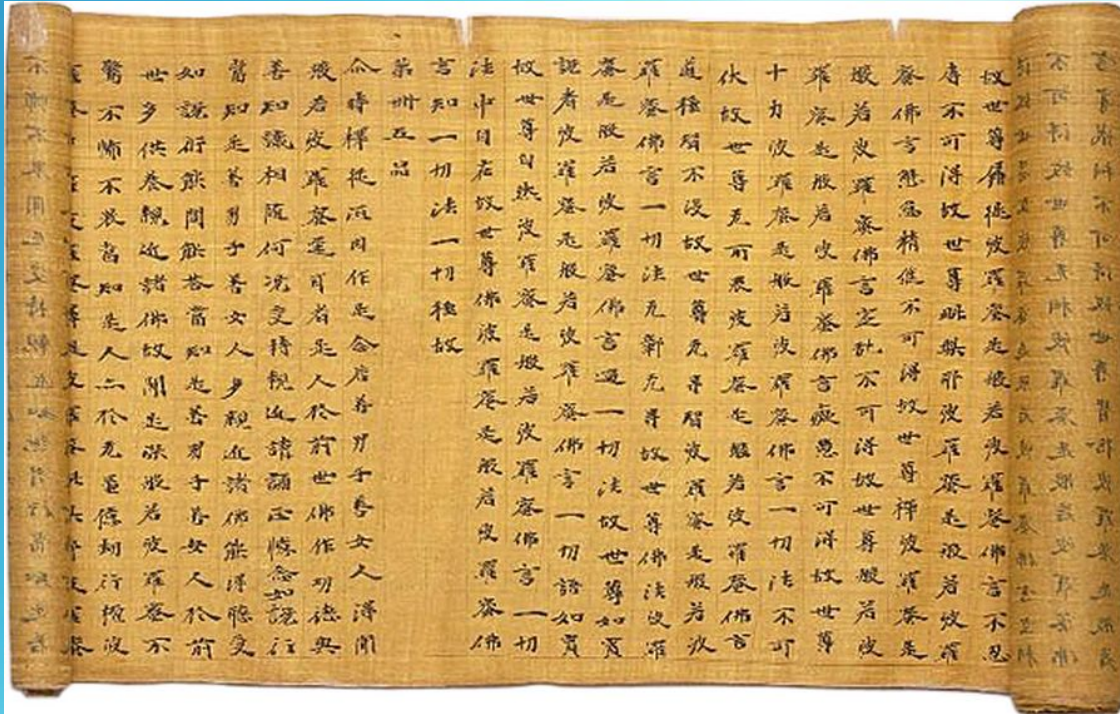 故世尊羼提波羅蜜是般若波羅蜜佛言不忍
辱不可得故世尊毗梨耶波羅蜜是般若波羅
蜜佛言懈怠精進不可得故世尊禪波羅蜜是
般若波羅蜜佛言定亂不可得故世尊般若波
羅蜜是般若波羅蜜佛言癡慧不可得故世尊
十力波羅蜜是般若波羅蜜佛言一切法不可
伏故世尊无所畏波羅蜜是般若波羅蜜佛言
道種智不沒故世尊无导智波羅蜜是般若波
羅蜜佛言一切法无鄣无导故世尊佛法波羅
蜜是般若波羅蜜佛言過一切法故世尊如實
說者波羅蜜是般若波羅蜜佛言一切語如實
故世尊自然波羅蜜是般若波羅蜜佛言一切
法中自在故世尊佛波羅蜜是般若波羅蜜佛
言知一切法一切種故
第卌五品
尒時釋提洹因作是念若善男子善女人得聞
般若波羅蜜耳者是人於前世佛作功德與
善知識相隨何況受持親近讀誦正憶念如說行
當知是善男子善女人多親近諸佛能得聽受
如說行能問能荅當知是善男子善女人於前
世多供養親近諸佛故聞是深般若波羅蜜不
驚不怖不畏當知是人亦於无量億劫行檀波